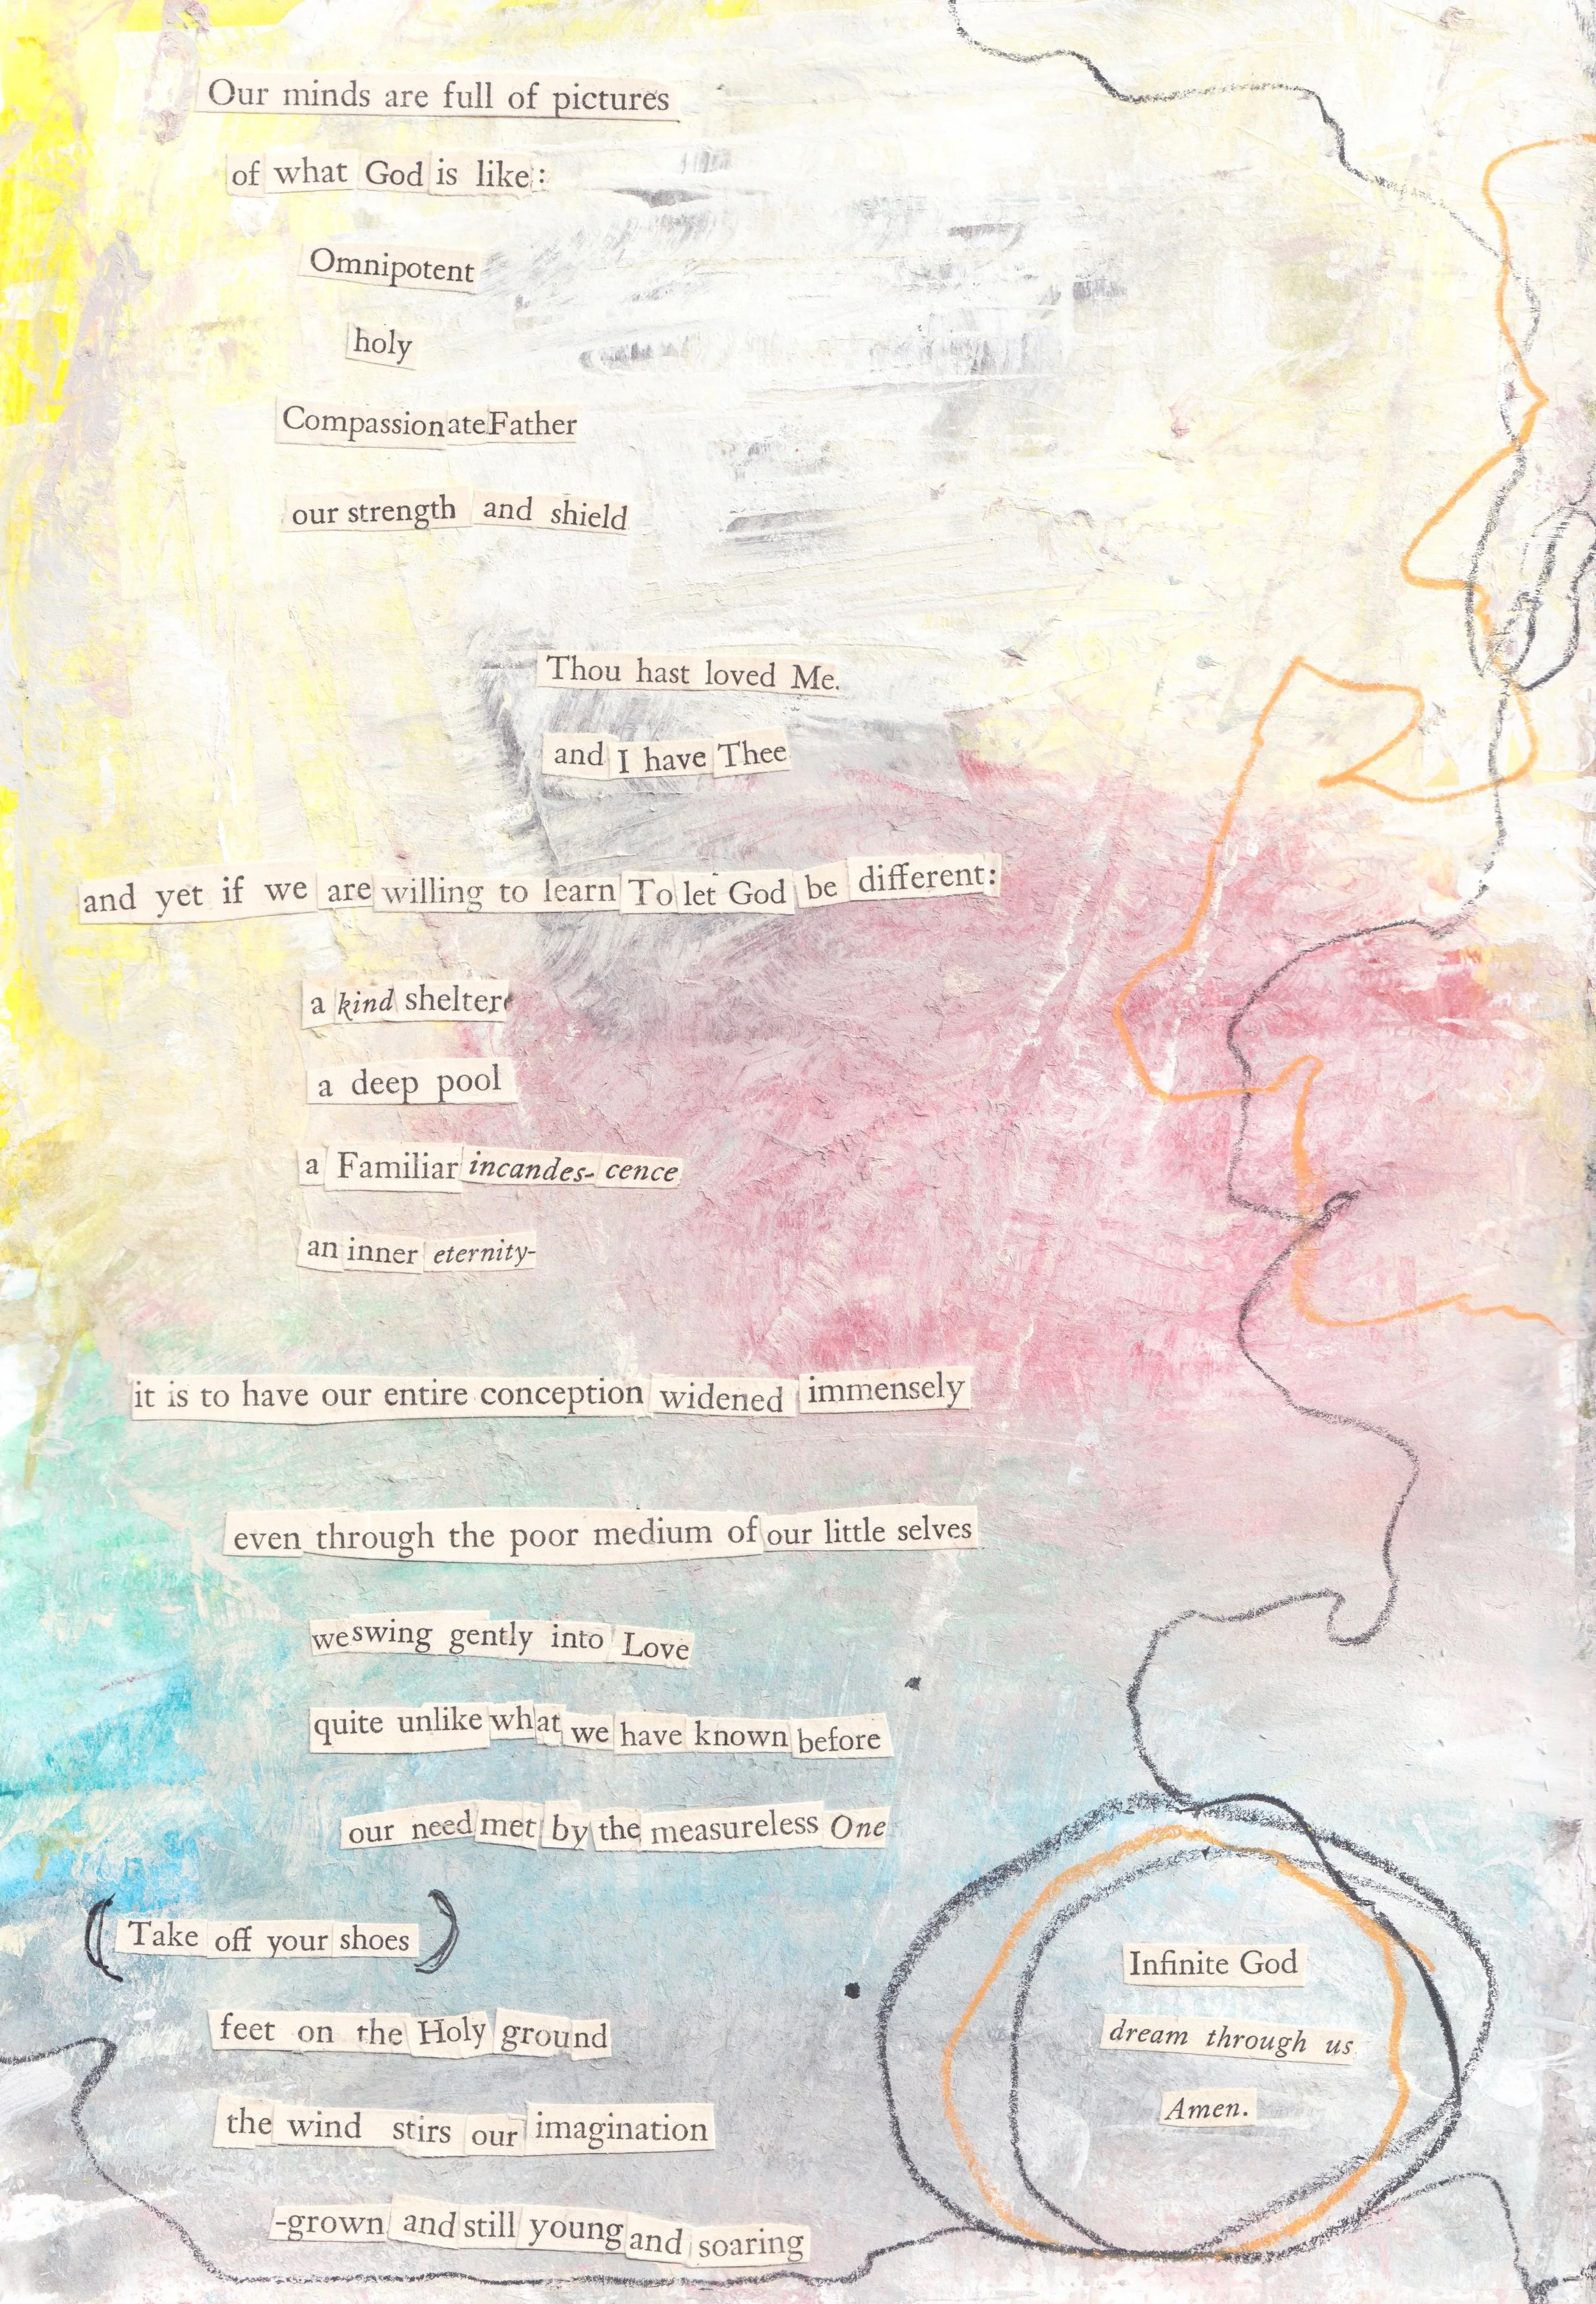 Our minds are full of pictures
of what God is like:
Omnipotent
holy
Compassionate Father
our strength and shield
Thou hast loved Me.
and I have Thee
and yet if we are willing to learn To let God be different:
a kind shelter
a deep pool
a Familiar incandes- cence
an inner eternity-
it is to have our entire conception widened immensely
even through the poor medium of our little selves
we swing gently into Love
quite unlike what we have known before
our need met by the measureless One
(Take off your shoes)
feet on the Holy ground
the wind stirs our imagination
-grown and still young and soaring
Infinite God
dream through us
Amen.